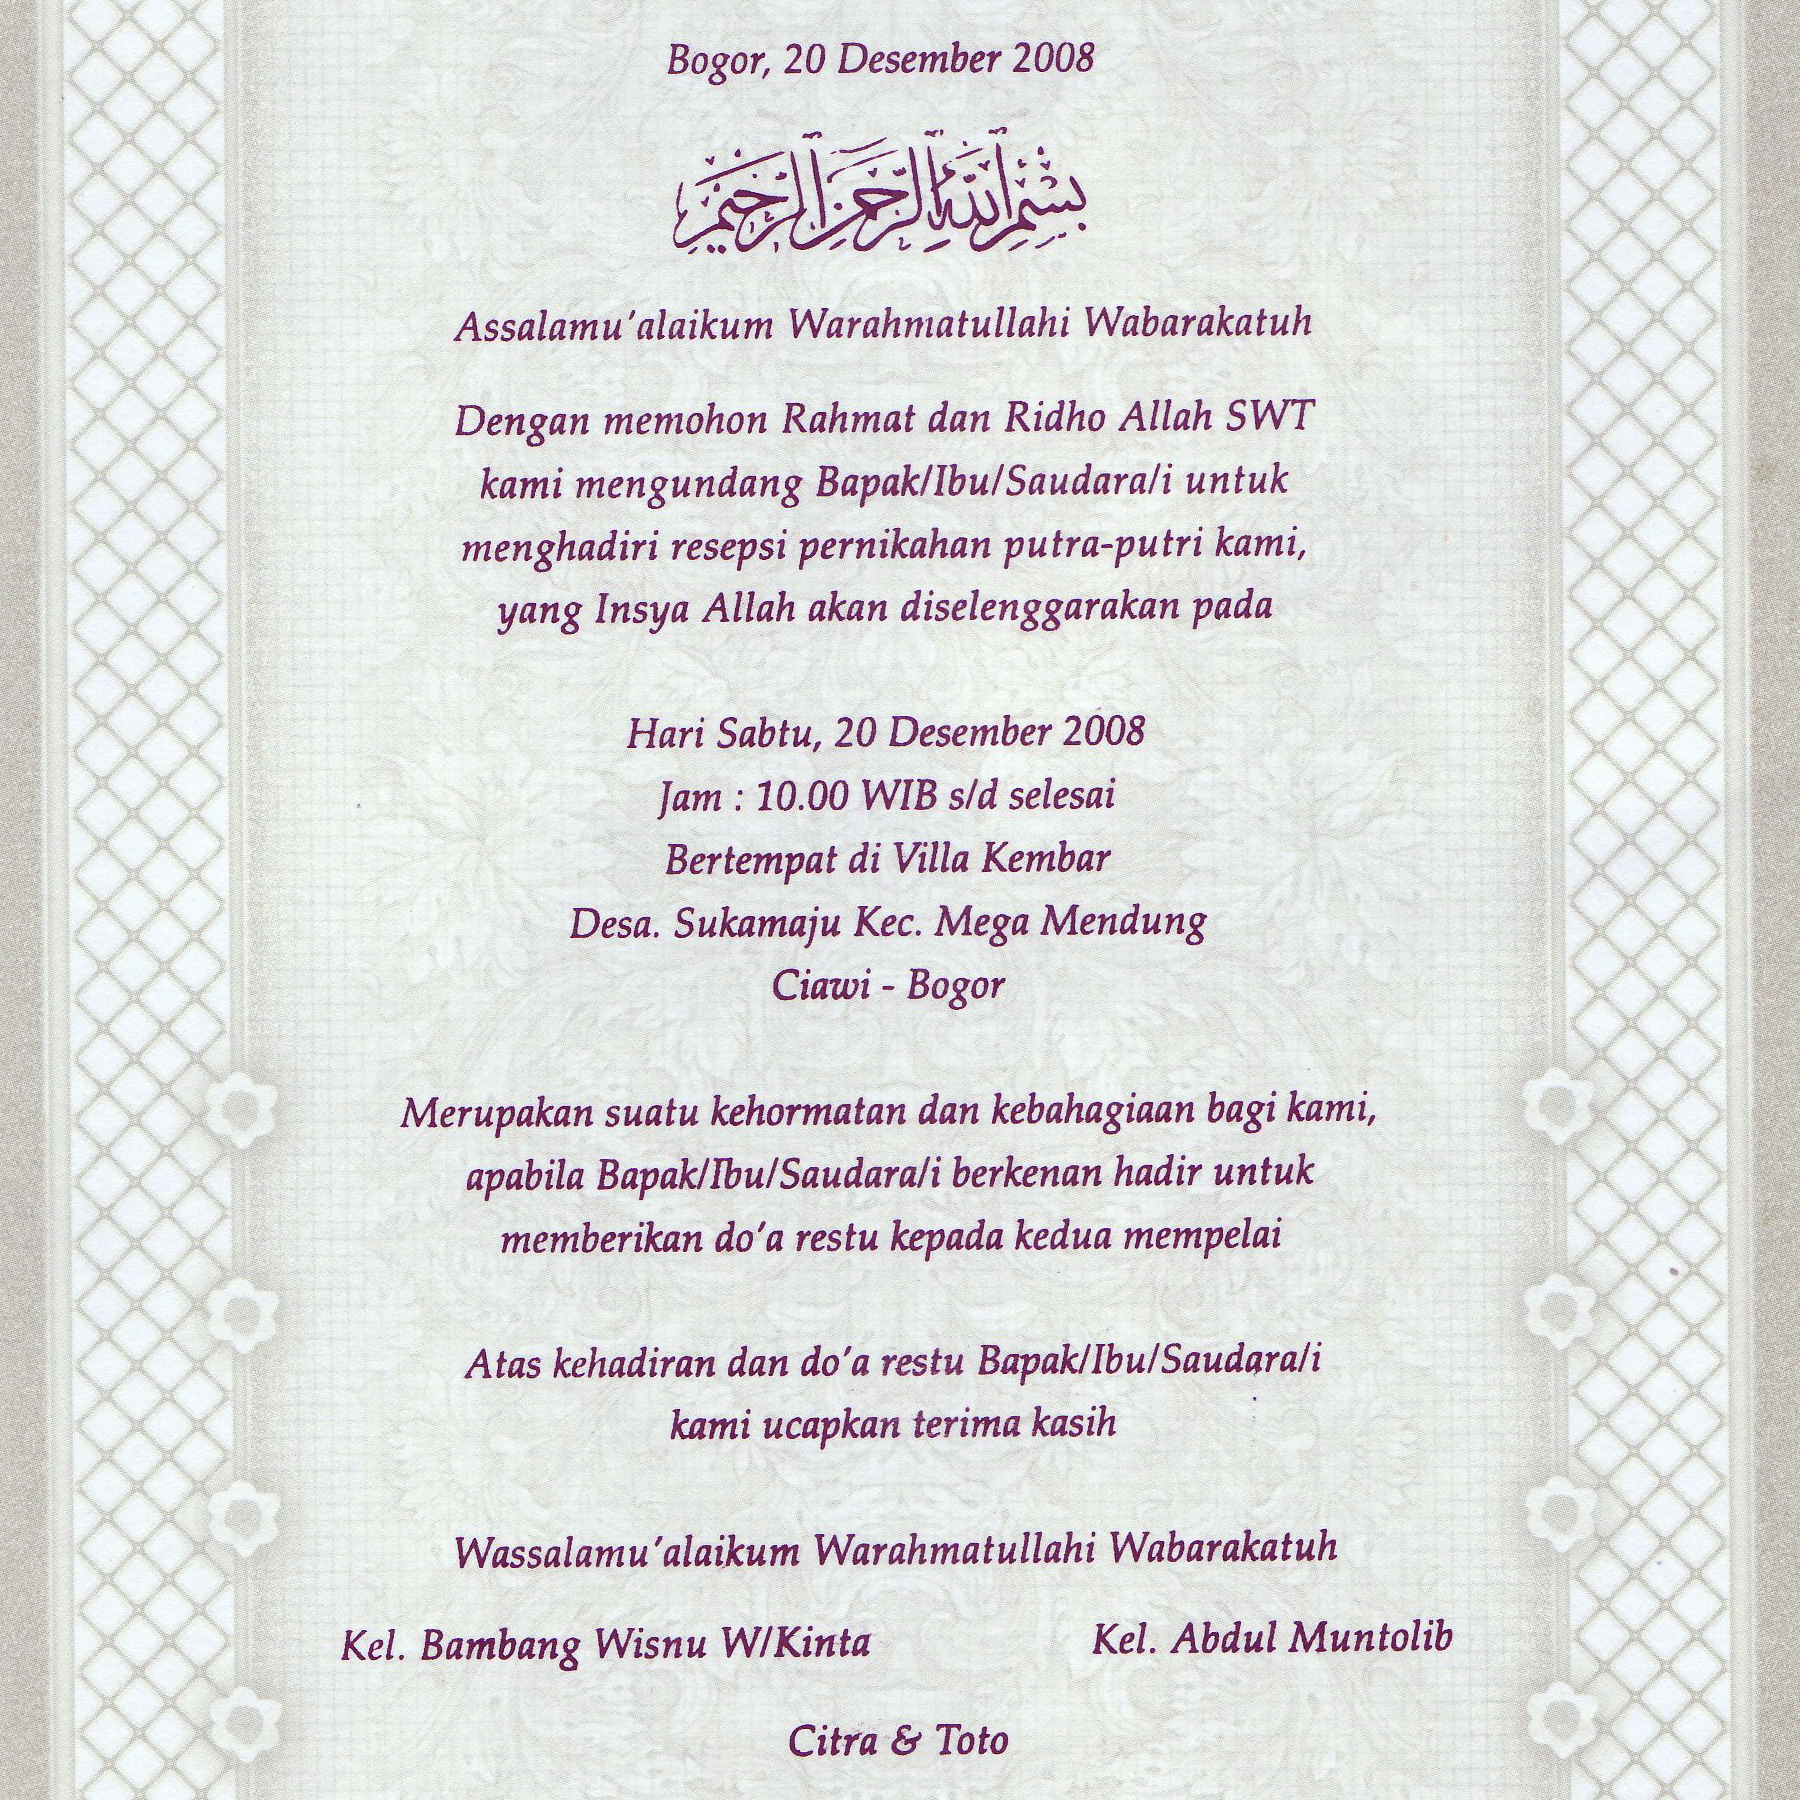 Bogor, 20 Desember 2008
بسم الله الرحمن الرحيم
Assalamu'alaikum Warahmatullahi Wabarakatuh
Dengan memohon Rahmat dan Ridho Allah SWT
kami mengundang Bapak/Ibu/Saudara/i untuk
menghadiri resepsi pernikahan putra-putri kami,
yang Insya Allah akan diselenggarakan pada
Hari Sabtu, 20 Desember 2008
Jam : 10.00 WIB s/d selesai
Bertempat di Villa Kembar
Desa. Sukamaju Kec. Mega Mendung
Ciawi - Bogor
Merupakan suatu kehormatan dan kebahagiaan bagi kami,
apabila Bapak/Ibu/Saudara/i berkenan hadir untuk
memberikan do'a restu kepada kedua mempelai
Atas kehadiran dan do'a restu Bapak/Ibu/Saudara/i
kami ucapkan terima kasih
Wassalamu'alaikum Warahmatullahi Wabarakatuh
Kel. Bambang Wisnu W/Kinta Kel. Abdul Muntolib
Citra & Toto